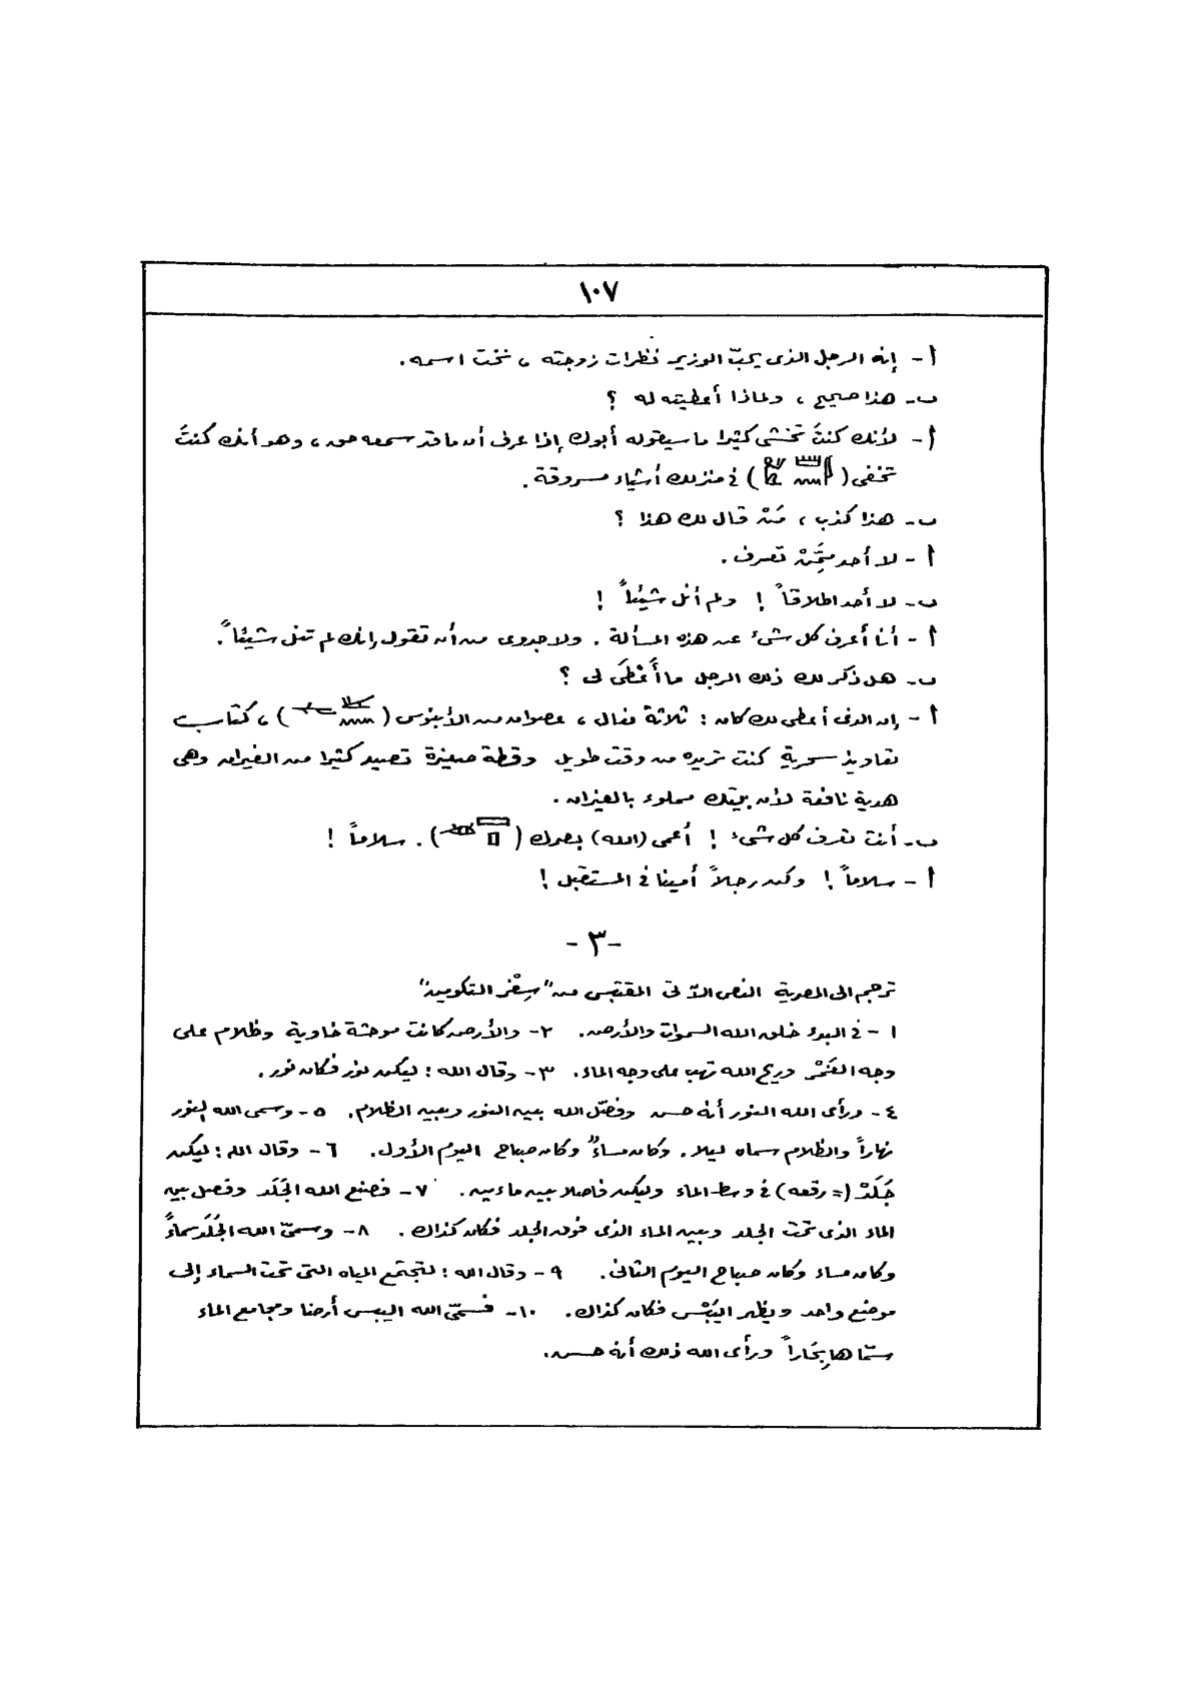 ١٠٧
أ - إنه الرجل الذى يحبّ الوزير نظرات زوجته ، نخت اسمه.
ب - هذا صحيح ، ولماذا أعطيته له ؟
أ - لأنك كنتَ تخشى كثيرا ما سيقوله أبوك إذا عرف أن ما قد سمعه حق ، وهو أنك كنتَ
تخفى ( ) فى منزلك أشياء مسروقة.
ب - هذا كذب ، مَنْ قال لك هذا ؟
أ - لا أحد ممَّنْ تعرف.
ب - لا أحد اطلاقاً ! ولم أنل شيئاً !
أ - أنا أعرف كل شىء عن هذه المسألة. ولا جدوى من أن تقول إنك لم تنل شيئاً.
ب - هل ذكر لك ذلك الرجل ما أُعْطَى لى ؟
أ - إن الذى أعطى لك كان : ثلاثة نعال ، عصوان من الأبنوس ( ) ، كتاب
تعاويذ سحرية كنت تريده من وقت طويل وقطة صغيرة تصيد كثيرا من الفيران وهى
هدية نافعة لأن بيتك مملوء بالفيران.
ب - أنت تعرف كل شىء ! أعمى (الله) بصرك ( ). سلاماً !
أ - سلاماً ! وكن رجلاً أمينا فى المستقبل !
- ٣ -
ترجم الى المصرية النص الآتى المقتبس من "سِفْر التكوين"
١ - فى البدء خلق الله السموات والأرض. ٢ - والأرض كانت موحشة خاوية وظلام على
وجه الغَمْر وريح الله تهب على وجه الماء. ٣ - وقال الله : ليكن نور فكان نور.
٤ - ورأى الله النور أنه حسن وفصّل الله بين النور وبين الظلام. ٥ - وسمى الله النور
نهاراً والظلام سماه ليلا. وكان مساءٌ وكان صباح اليوم الأول. ٦ - وقال الله : ليكن
جَلَدْ (= رقعه) فى وسط الماء وليكن فاصلا بين ماءين. ٧ - فصنع الله الجَلَد وفصل بين
الماء الذى تحت الجلد وبين الماء الذى فوق الجلد فكان كذلك. ٨ - وسمىّ الله الجَلَدَ سماءً
وكان مساء وكان صباح اليوم الثانى. ٩ - وقال الله : لتجتمع المياه التى تحت السماء إلى
موضع واحد ويظهر اليَبْس فكان كذلك. ١٠ - فسمّى الله اليبس أرضا ومجامع الماء
سمّاها بِحَاراً ورأى الله ذلك أنه حسن.